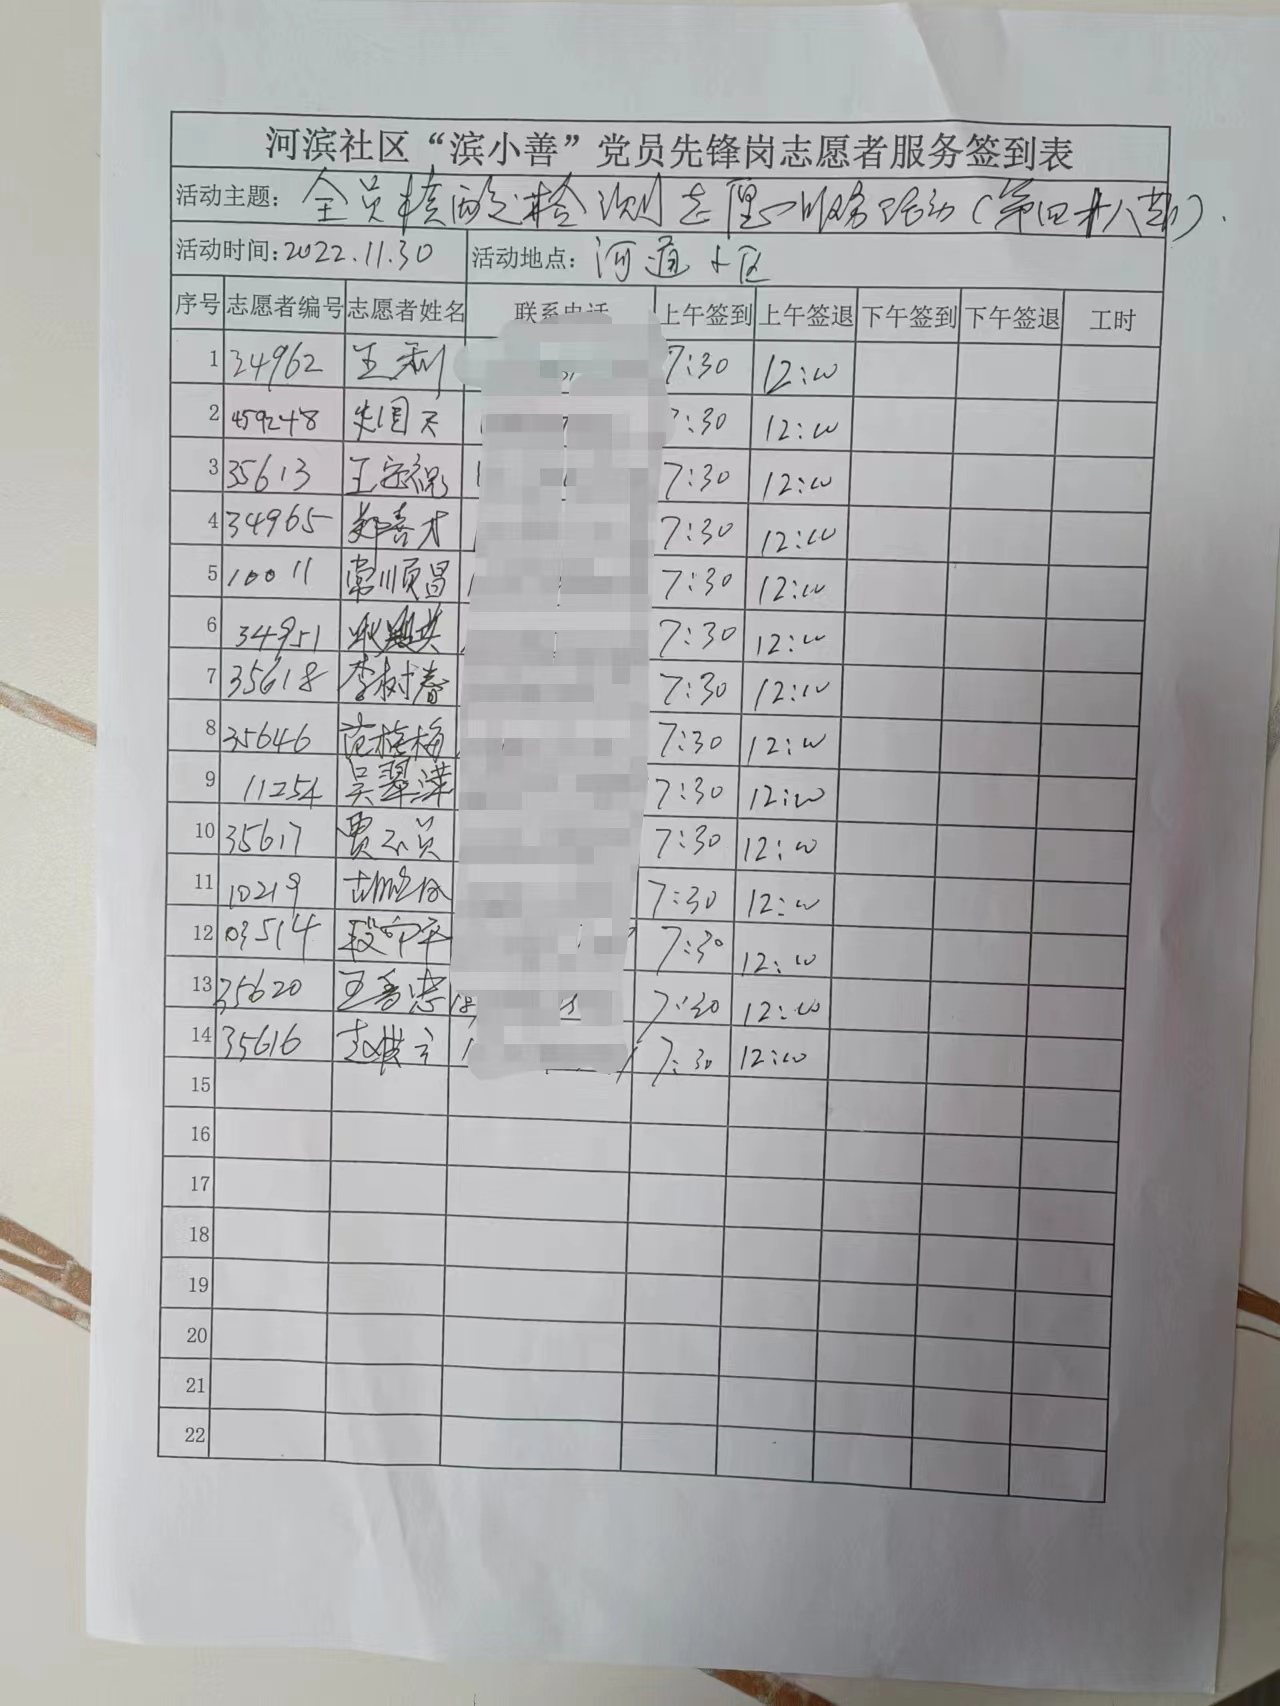 河滨社区“滨小善”党员先锋岗志愿者服务签到表
活动主题：全员核酸检测志愿服务活动（第四十八期）.
活动时间：2022.11.30 活动地点：河道小区
序号 志愿者编号 志愿者姓名 联系电话 上午签到 上午签退 下午签到 下午签退 工时
1 34962 王利 7:30 12:00
2 459248 7:30 12:00
3 35613 王 7:30 12:00
4 34965 郑喜才 7:30 12:00
5 10011 常顺昌 7:30 12:00
6 34951 7:30 12:00
7 35618 李树春 7:30 12:00
8 35646 范梅 7:30 12:00
9 11254 吴翠萍 7:30 12:00
10 35617 贾 7:30 12:00
11 10219 胡 7:30 12:00
12 03514 段 平 7:30 12:00
13 35620 王香忠 18 7:30 12:00
14 35616 赵 7:30 12:00
15
16
17
18
19
20
21
22